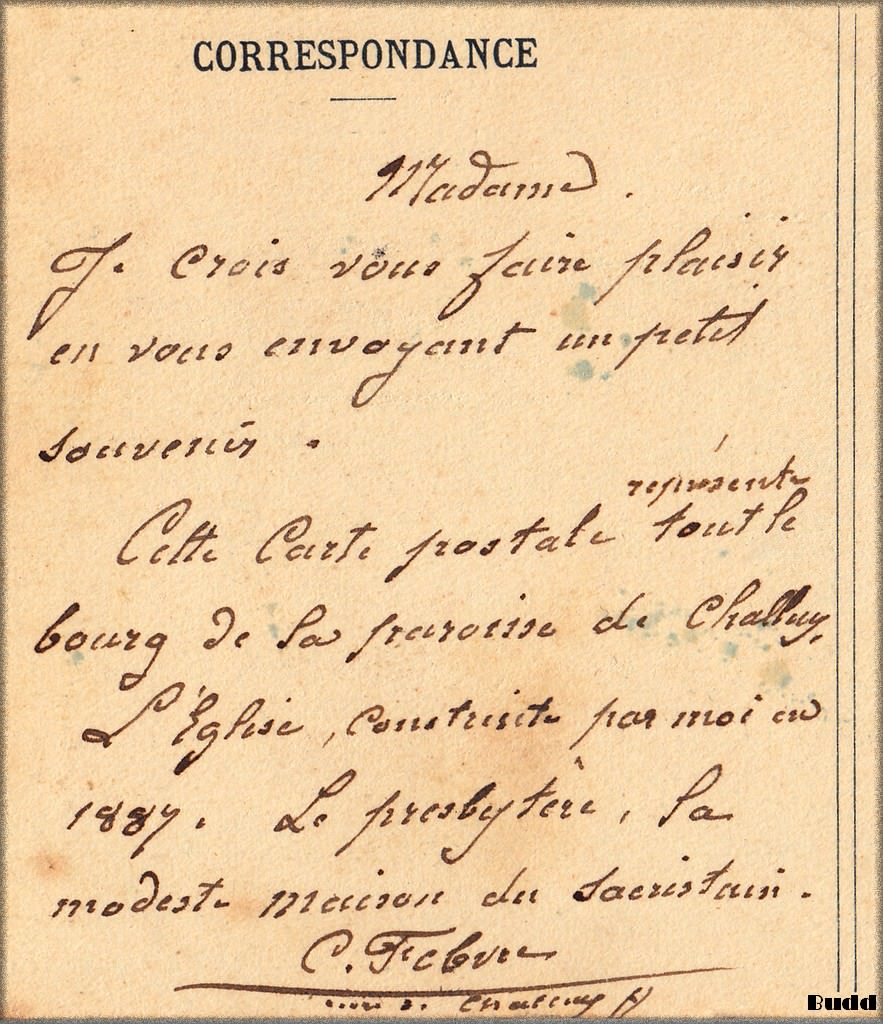 CORRESPONDANCE
Madame.
Je crois vous faire plaisir
en vous envoyant un petit
souvenir.
représente
Cette Carte postale tout le
bourg de la paroisse de Challuy.
L'Église, construite par moi en
1887. Le presbytère, la
modeste maison du sacristain.
C. Febvre
de Challuy
Budd